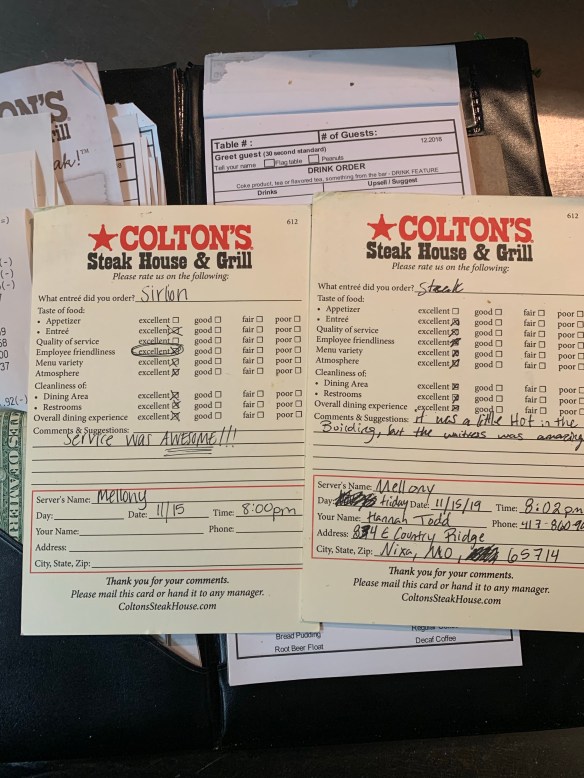 ON'S
ill
eak!™
=)
(-)
(-)
(-)
7
59
58
00
37
.92(-)
ES OF AMER
Table # :
# of Guests:
12.2018
Greet guest (30 second standard)
Tell your name ☐ Flag table ☐ Peanuts
DRINK ORDER
Coke product, tea or flavored tea, something from the bar - DRINK FEATURE
Drinks
Upsell / Suggest
612
COLTON'S
Steak House & Grill
Please rate us on the following:
What entreé did you order? Sirlion
Taste of food:
• Appetizer excellent ☐ good ☐ fair ☐ poor ☐
• Entreé excellent ☒ good ☐ fair ☐ poor ☐
Quality of service excellent ☐ good ☐ fair ☐ poor ☐
Employee friendliness excellent ☒ good ☐ fair ☐ poor ☐
Menu variety excellent ☒ good ☐ fair ☐ poor ☐
Atmosphere excellent ☒ good ☐ fair ☐ poor ☐
Cleanliness of:
• Dining Area excellent ☒ good ☐ fair ☐ poor ☐
• Restrooms excellent ☒ good ☐ fair ☐ poor ☐
Overall dining experience excellent ☒ good ☐ fair ☐ poor ☐
Comments & Suggestions:
Service was AWESOME!!!
Server's Name: Mellony
Day: Date: 11/15 Time: 8:00pm
Your Name: Phone:
Address:
City, State, Zip:
Thank you for your comments.
Please mail this card or hand it to any manager.
ColtonsSteakHouse.com
612
COLTON'S
Steak House & Grill
Please rate us on the following:
What entreé did you order? Steak
Taste of food:
• Appetizer excellent ☐ good ☐ fair ☐ poor ☐
• Entreé excellent ☒ good ☐ fair ☐ poor ☐
Quality of service excellent ☒ good ☐ fair ☐ poor ☐
Employee friendliness excellent ☒ good ☐ fair ☐ poor ☐
Menu variety excellent ☒ good ☐ fair ☐ poor ☐
Atmosphere excellent ☒ good ☐ fair ☐ poor ☐
Cleanliness of:
• Dining Area excellent ☒ good ☐ fair ☐ poor ☐
• Restrooms excellent ☒ good ☐ fair ☐ poor ☐
Overall dining experience excellent ☒ good ☐ fair ☐ poor ☐
Comments & Suggestions: it was a little Hot in the
Building, but the waitress was amazing
Server's Name: Mellony
Day: friday Date: 11/15/19 Time: 8:02pm
Your Name: Hannah Todd Phone: 417-860-90
Address: 834 E Country Ridge
City, State, Zip: Nixa, MO, 65714
Thank you for your comments.
Please mail this card or hand it to any manager.
ColtonsSteakHouse.com
Bread Pudding
Root Beer Float
Decaf Coffee